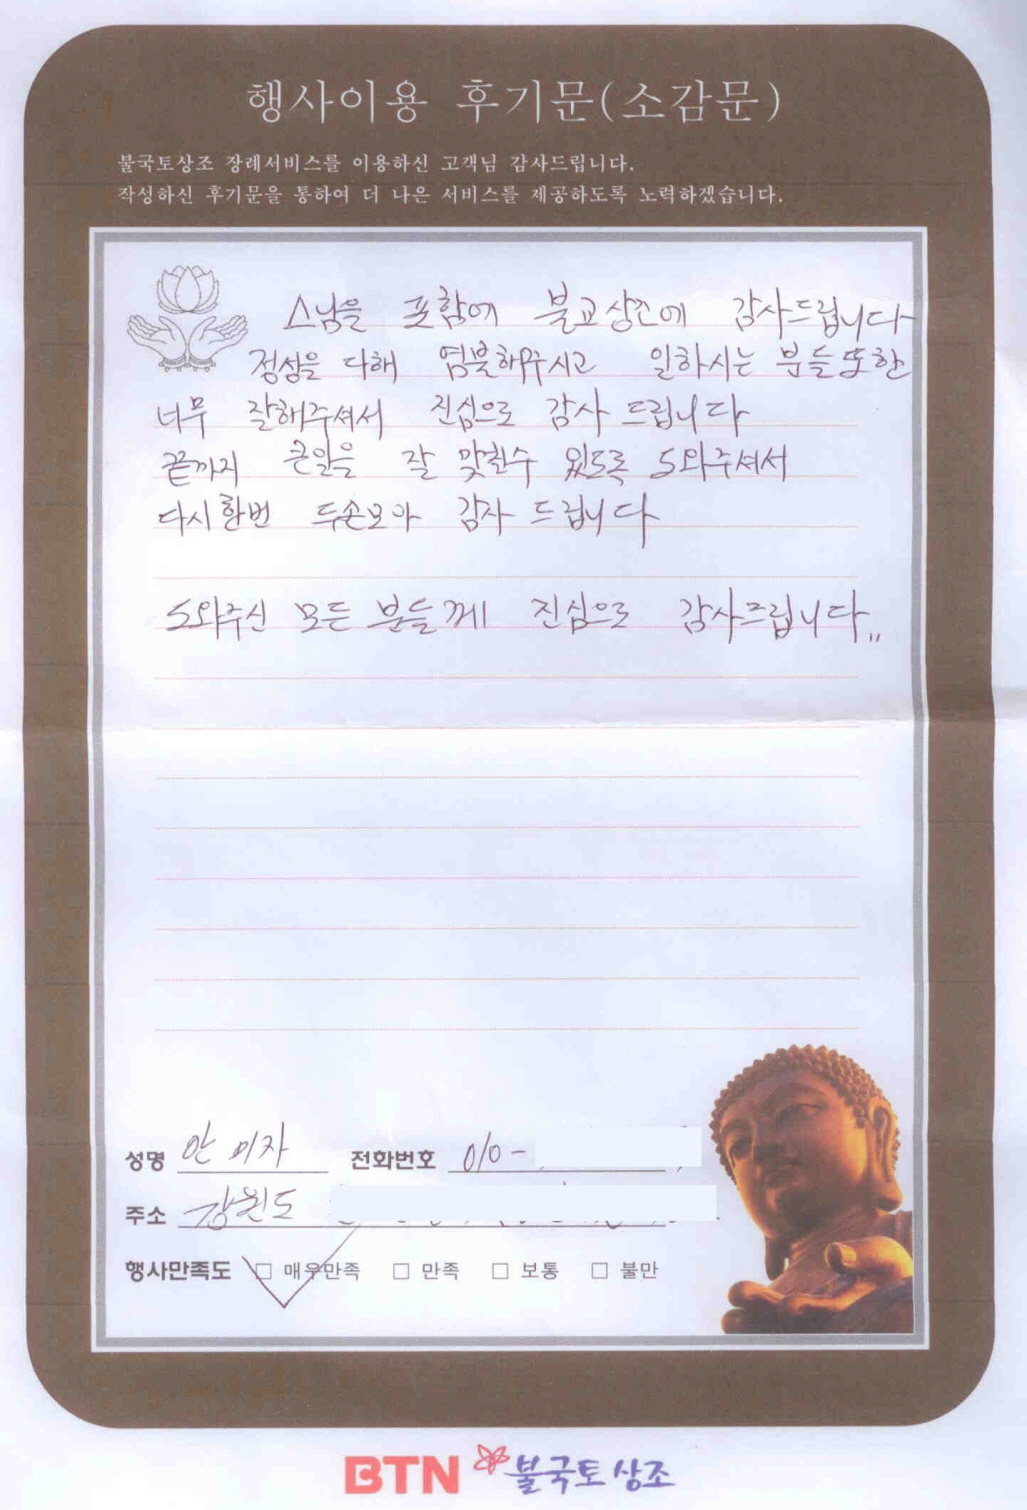 행사이용 후기문(소감문)
불국토상조 장례서비스를 이용하신 고객님 감사드립니다.
작성하신 후기문을 통하여 더 나은 서비스를 제공하도록 노력하겠습니다.
스님을 포함에 불교상조에 감사드립니다
정성을 다해 염불해주시고 일하시는 분들 또한
너무 잘해주셔서 진심으로 감사 드립니다
끝까지 큰일을 잘 맞칠수 있도록 도와주셔서
다시한번 두손모아 감사 드립니다
도와주신 모든 분들께 진심으로 감사드립니다,,
성명 안미자 전화번호 010-
주소 강원도
행사만족도 □ 매우만족 □ 만족 □ 보통 □ 불만
BTN 불국토상조